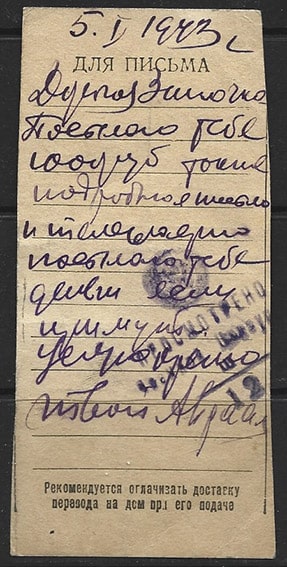 5.I 1943 г
ДЛЯ ПИСЬМА
Дорогая Зиночка
Посылаю тебе
100 руб также
подробное письмо
и телеграмму
посылаю тебе
деньги если
ПРОСМОТРЕНО
12
твой
Рекомендуется оплачивать доставку
перевода на дом при его подаче